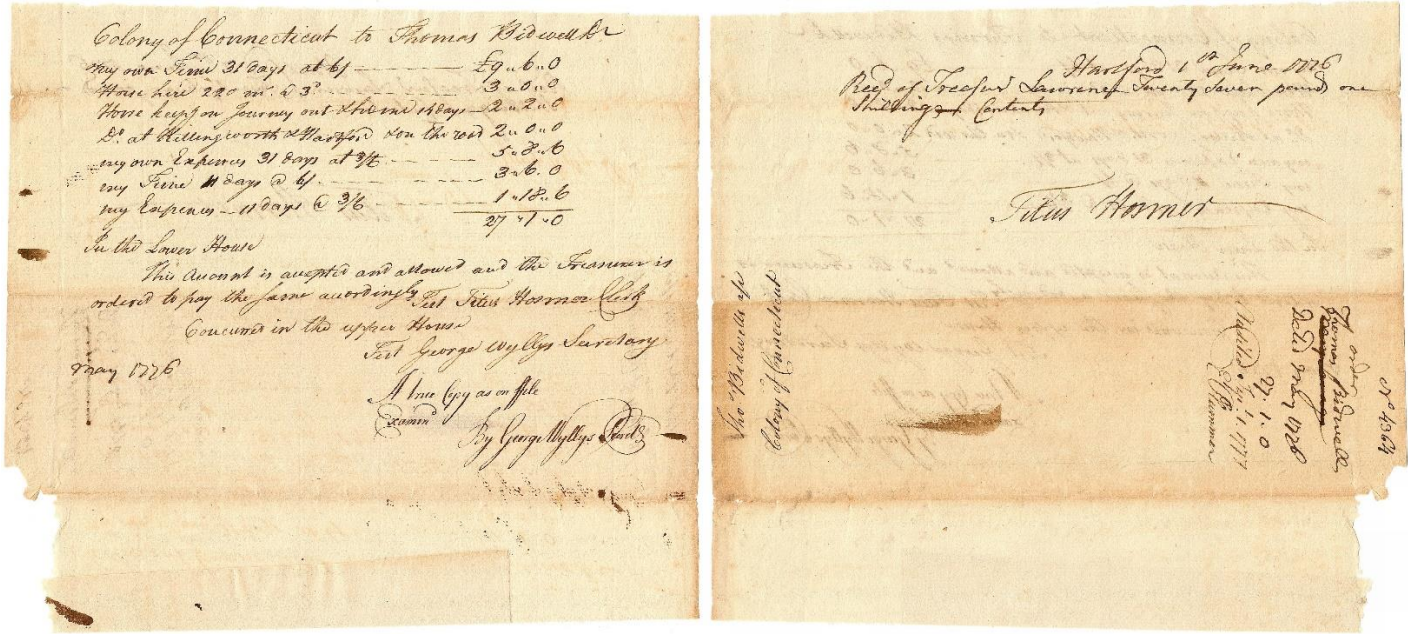 Colony of Connecticut to Thomas Bidwell Dr
my own Time 31 days at 6/ £9 " 6 " 0
Horse hire 220 mls @ 3d 3 " 0 " 0
Horse keep on Journey out & home 14 days 2 " 2 " 0
Do at Killingworth & Hartford & on the road 2 " 0 " 0
my own Expences 31 days at 3/6 5 " 8 " 6
my Time 11 days @ 6/ 3 " 6 " 0
my Expences 11 days @ 3/6 1 " 18 " 6
27 " 1 " 0
In the Lower House
This Account is accepted and allowed and the Treasurer is
ordered to pay the same accordingly Test Titus Hosmer Clerk
Concurred in the upper House
Test George Wyllys Secretary
May 1776
A true Copy as on file
Examind
By George Wyllys Secrety
Hartford 1st June 1776
Recd of Treasur Lawrence Twenty Seven pounds one
Shilling Contents
Titus Hosmer
Tho Bidwells
Colony of Connecticut
No 4364
order
Thomas Bidwell
Datd May 1776
27.1.0
1.1777